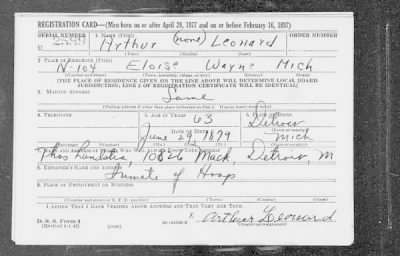 REGISTRATION CARD—(Men born on or after April 28, 1877 and on or before February 16, 1897)
SERIAL NUMBER 1. NAME (Print) ORDER NUMBER
U Arthur (none) Leonard
(First) (Middle) (Last)
2. PLACE OF RESIDENCE (Print)
N-104 Eloise Wayne Mich
(Number and street) (Town, township, village, or city) (County) (State)
[THE PLACE OF RESIDENCE GIVEN ON THE LINE ABOVE WILL DETERMINE LOCAL BOARD
JURISDICTION; LINE 2 OF REGISTRATION CERTIFICATE WILL BE IDENTICAL]
3. MAILING ADDRESS
Same
(Mailing address if other than place indicated on line 2. If same insert word same)
4. TELEPHONE 5. AGE IN YEARS 6. PLACE OF BIRTH
63 Detroit
DATE OF BIRTH (Town or county)
June 29 1879 Mich
(Mo.) (Day) (Yr.) (State or country)
7. NAME AND ADDRESS OF PERSON WHO WILL ALWAYS KNOW YOUR ADDRESS
Thos 10826 Mack, Detroit, M
8. EMPLOYER'S NAME AND ADDRESS
Inmate of Hosp
9. PLACE OF EMPLOYMENT OR BUSINESS
(Number and street or R. F. D. number) (Town) (County) (State)
I AFFIRM THAT I HAVE VERIFIED ABOVE ANSWERS AND THAT THEY ARE TRUE.
D. S. S. Form 1
(Revised 4-1-42) (over) x Arthur Leonard
(Registrant's signature)